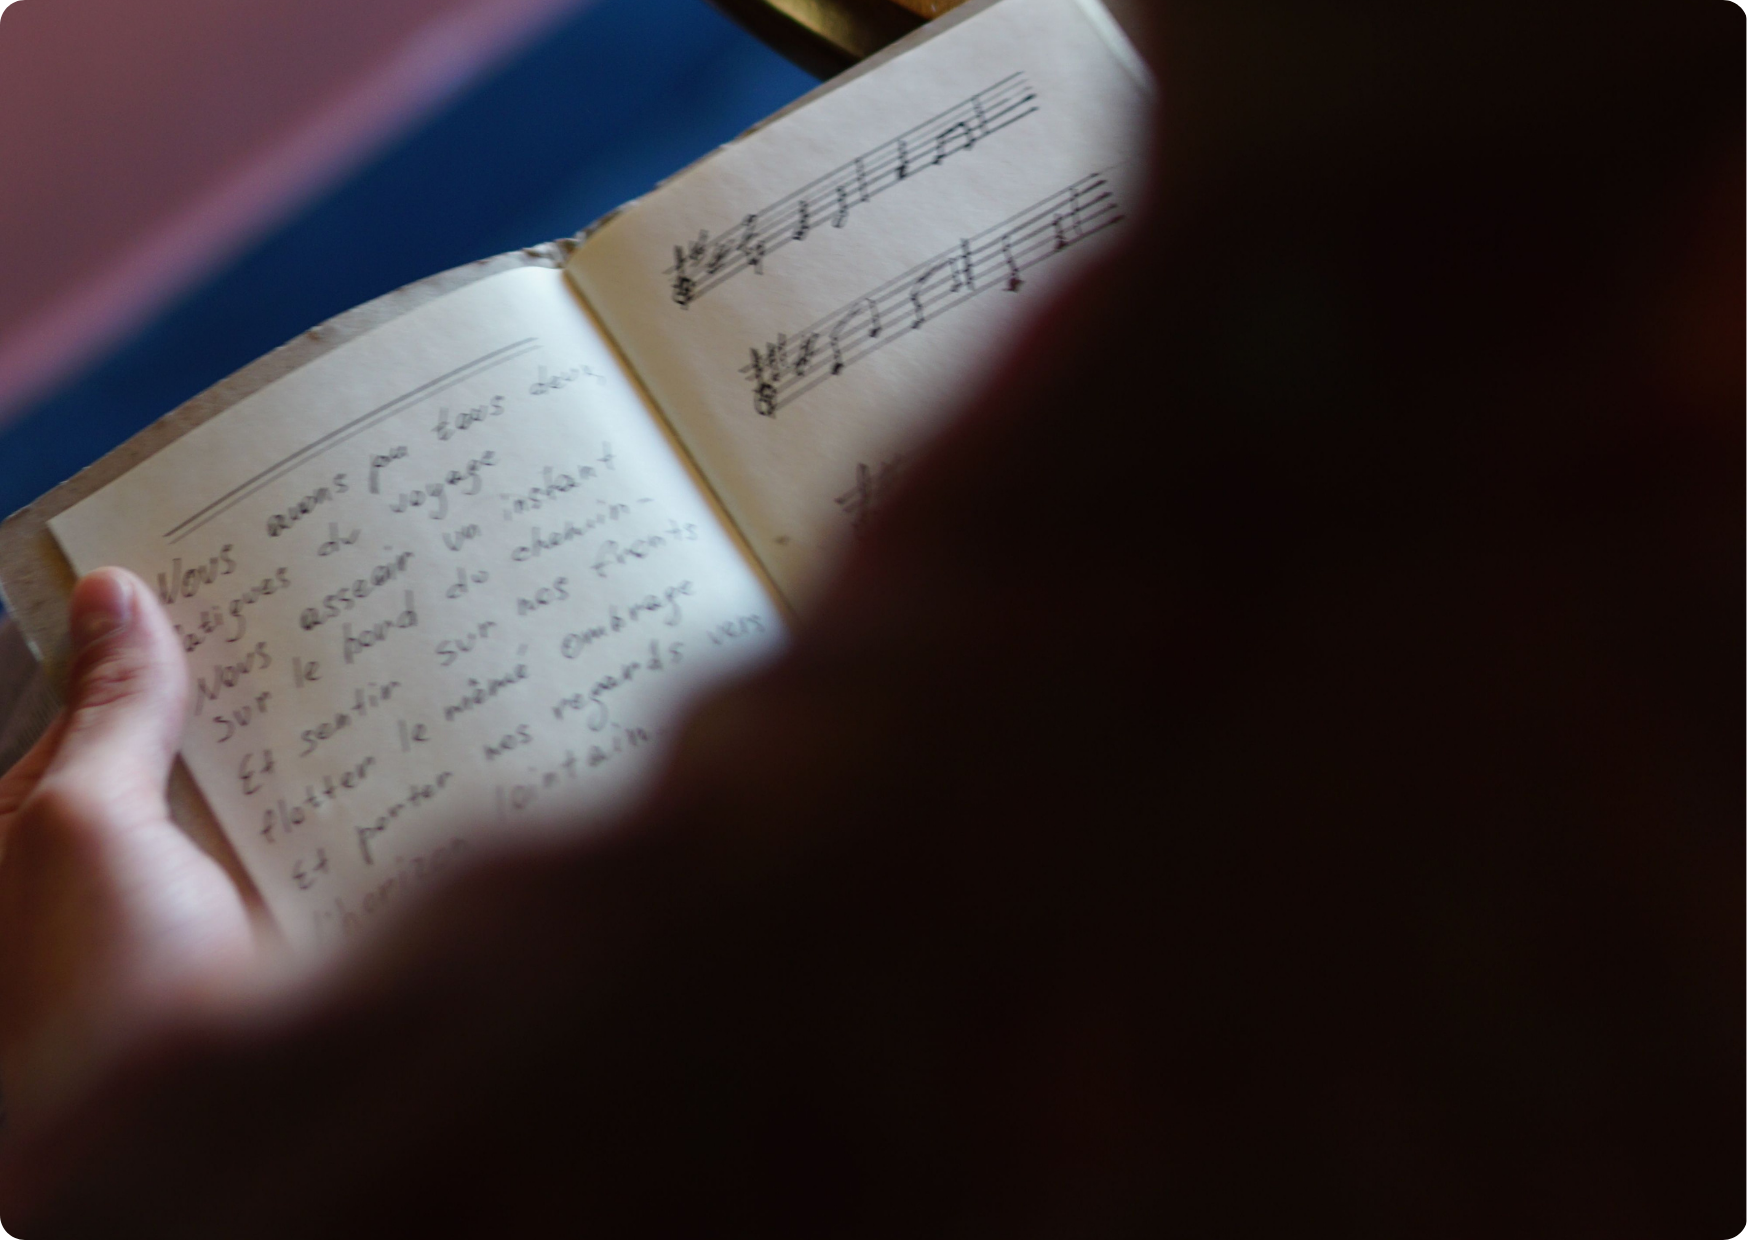 Nous avons pu tous deux,
fatigues du voyage
Nous asseoir un instant
sur le bord du chemin-
Et sentir sur nos fronts
flotter le même ombrage
Et porter nos regards vers
l'horizon lointain